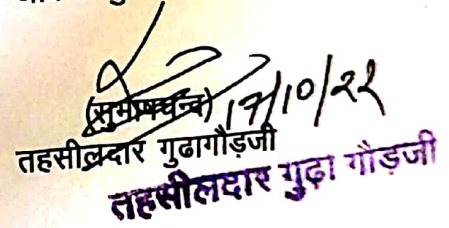 (सुभाषचन्द्र) 17/10/22
तहसीलदार गुढागौड़जी
तहसीलदार गुढ़ा गौड़जी